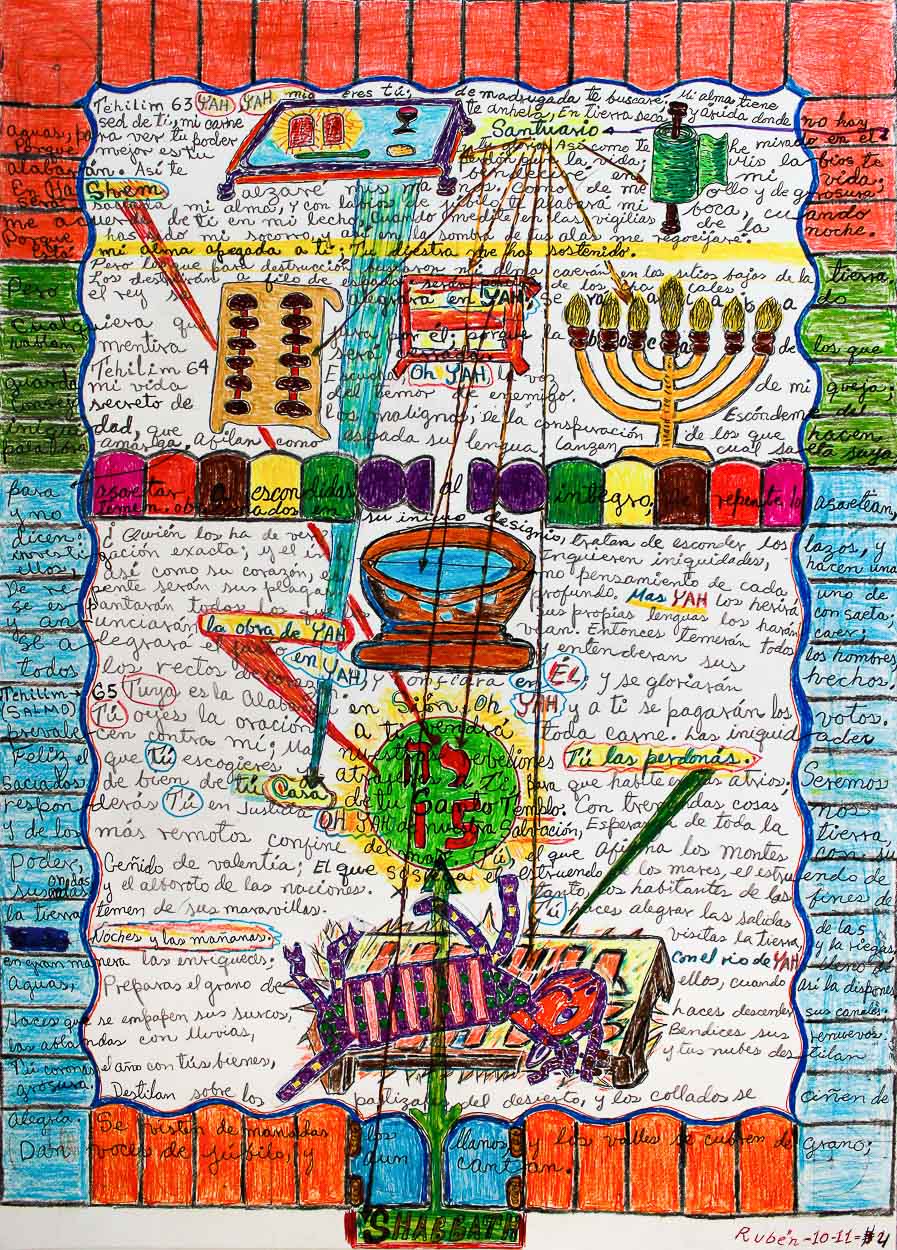 Tehilim 63 YAH, YAH mio eres tú; de madrugada te buscaré; Mi alma tiene
sed de ti, mi carne te anhela, En tierra seca y árida donde no hay
aguas, para ver tu poder Santuario
Porque mejor es tu y tu gloria, Así como te he mirado en el
alabarán. Así te vida; labios te
En Ha Shem alzaré mis manos. Como de meollo y de grosura;
mi alma, y con labios de júbilo te alabará mi boca, cuando
me acuerde de ti en mi lecho, Cuando medite en las vigilias de la noche.
Porque has sido mi socorro, y así en la sombra de tus alas me regocijaré.
Está mi alma apegada a ti; Tu diestra me ha sostenido.
Pero los que para destrucción buscaron mi alma caerán en los sitios bajos de la tierra.
Los destruirán a filo de espada; serán de los chacales.
Pero el rey se alegrará en YAH; Será alabado
Cualquiera que jura por él; porque la boca de los que
hablan mentira será cerrada.
Tehilim 64 Escucha, Oh YAH, la voz de mi queja;
guarda mi vida del temor de enemigo. Escóndeme del
consejo secreto de los malignos, De la conspiración de los que hacen
iniquidad, que afilan como espada su lengua lanzan cual saeta suya
para asaetar a escondidas al íntegro; de repente lo asaetean,
y no temen. obstinados en su inicuo designio, tratan de esconder los lazos, y
dicen: ¿Quién los ha de ver? Inquieren iniquidades, hacen una
investigación exacta; y el íntimo pensamiento de cada uno de
ellos, así como su corazón, es profundo. Mas YAH los herirá con saeta,
De repente serán sus plagas. sus propias lenguas los harán caer;
se espantarán todos los que vean. Entonces temerán todos los hombres,
y anunciarán la obra de YAH y entenderán sus hechos.
Se alegrará el justo en YAH, y confiará en ÉL; y se gloriarán
todos los rectos de corazón.
Tehilim 65 Tuya es la Alabanza en Sión, Oh YAH, y a ti se pagarán los votos.
(SALMO) Tú oyes la oración; a ti vendrá toda carne. Las iniquidades
prevalecen contra mí; Mas nuestras rebeliones Tú las perdonás.
Feliz el que Tú escogieres atrajeres a Ti, para que habite en tus atrios. Seremos
saciados de bien de tú Casa, de tu Santo Templo. Con tremendas cosas nos
responderás Tú en Justicia, OH YAH de nuestra Salvación, Esperanza de toda la tierra,
y de los más remotos confines del mar. Tú, el que Afirma los montes con su
Poder, Ceñido de valentía; El que sosiega el estruendo de los mares, el estruendo de
sus ondas y el alboroto de las naciones. tanto, los habitantes de los fines de
la tierra temen de sus maravillas. Tú haces alegrar las salidas de las
Noches y las mañanas. visitas la tierra, y la riegas;
en gran manera las enriqueces; Con el río de YAH, lleno de
Aguas, Preparas el grano de ellos, cuando así la dispones.
Haces que se empapen sus surcos, haces descender sus canales;
las ablandas con lluvias, Bendices sus renuevos.
Tú coronas el año con tus bienes, y tus nubes destilan
grosura. Destilan sobre los pastizales del desierto, y los collados se ciñen de
alegría. Se visten de manadas los llanos, y los valles se cubren de grano;
Dan voces de júbilo, y aun cantan.
SHABBATH
Rubén-10-11-#4